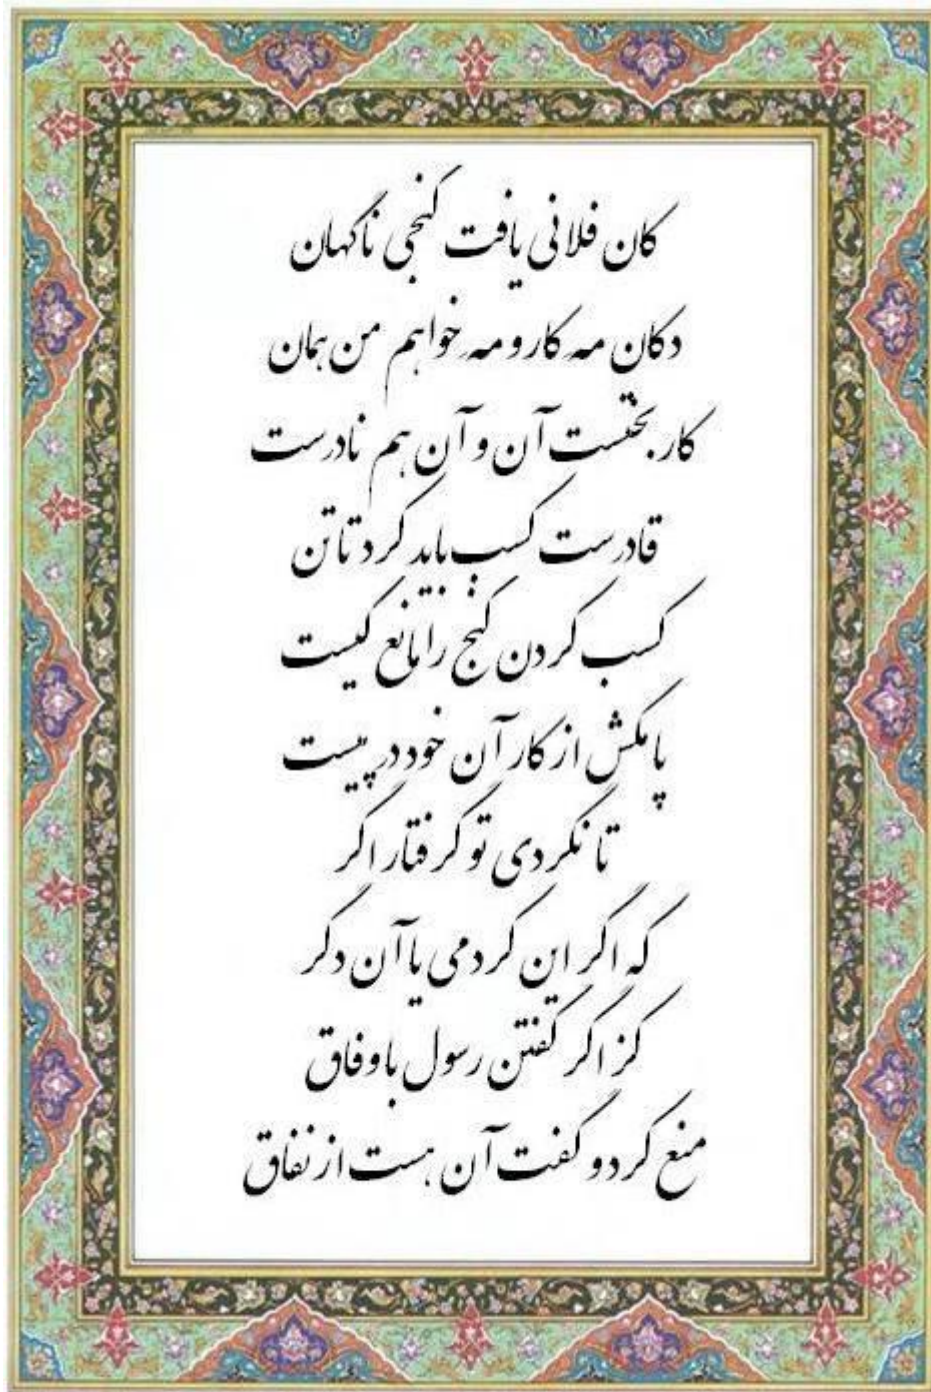 کان فلانی یافت گنجی ناگهان
دکان مه کار و مه خواهم من همان
کار بختست آن و آن هم نادرست
قادرست کسب باید کرد تا تن
کسب کردن گنج را مانع کیست
پا مکش از کار آن خود در پیست
تا نگردی تو گرفتار اگر
که اگر این کردمی یا آن دگر
کز اگر گفتن رسول با وفاق
منع کرد و گفت آن هست از نفاق